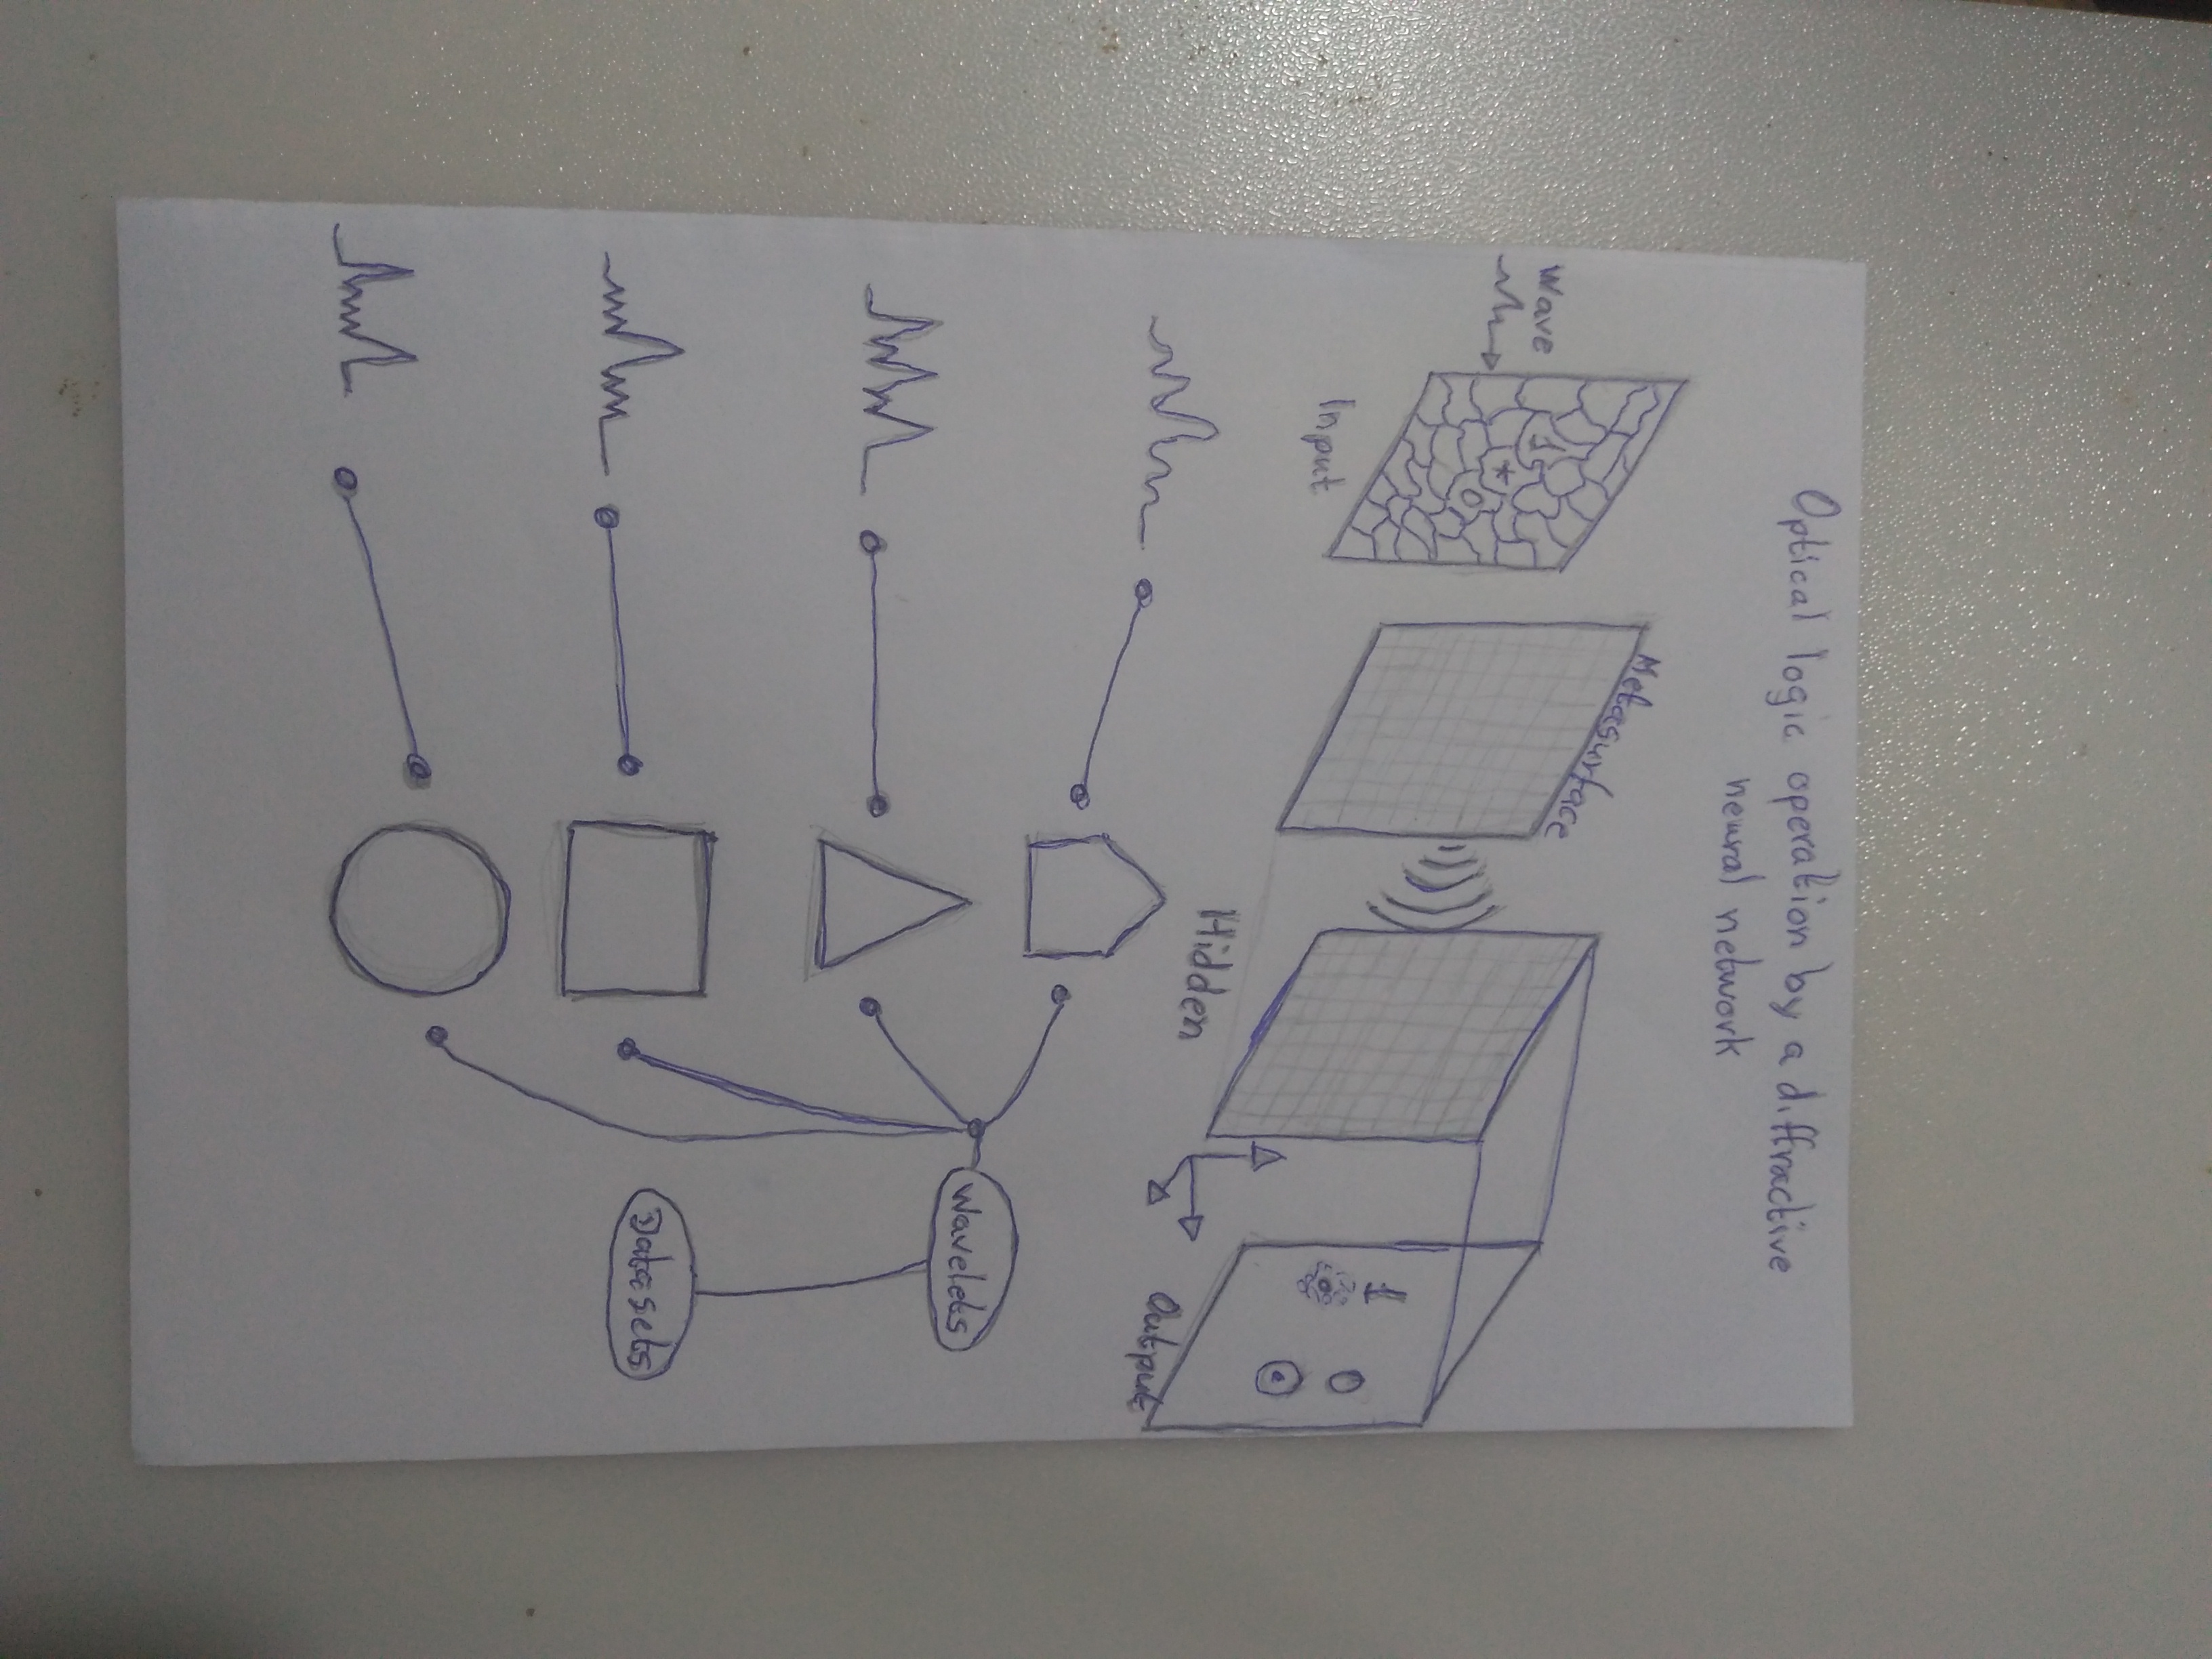 Optical logic operation by a diffractive
neural network
Wave
Metasurface
1
*
0
Input
Hidden
1 0
Output
Wavelets
Datasets